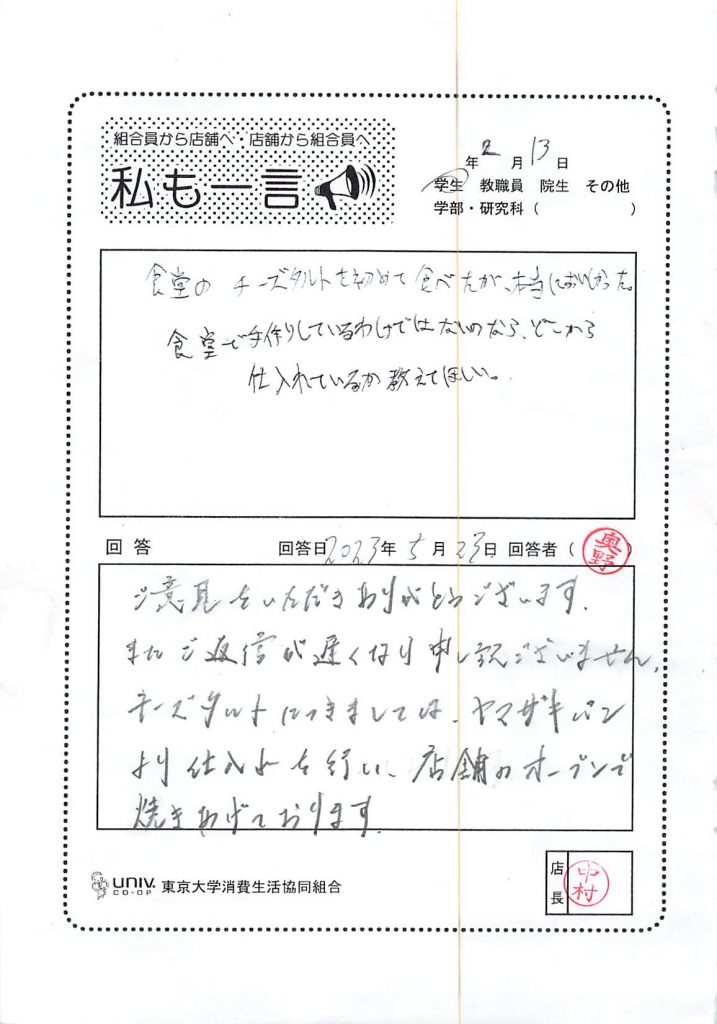 組合員から店舗へ・店舗から組合員へ
私も一言
年 2 月 13 日
学生 教職員 院生 その他
学部・研究科（ ）
食堂の チーズタルトを初めて食べたが、本当においしかった。
食堂で手作りしているわけではないのなら、どこから
仕入れているか教えてほしい。
回答 回答日 2023年 5月 23日 回答者（奥野）
ご意見をいただきありがとうございます。
またご返信が遅くなり申し訳ございません。
チーズタルトにつきましては、ヤマザキパン
より仕入れを行い、店舗のオーブンで
焼きあげております。
UNIV. CO-OP 東京大学消費生活協同組合
店長 中村